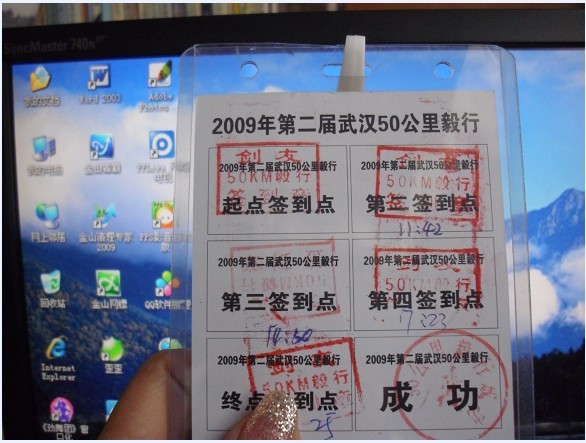 SyncMaster 740N
我的文档
Word 2003
Adobe
Photos
我的电脑
网上邻居
金山清理专家
2009
回收站
金山网镖
Internet
Explorer
歪歪
2009年第二届武汉50公里毅行
2009年第二届武汉50公里毅行
起点签到点
2009年第二届武汉50公里毅行
第二签到点
50KM毅行
11:42
2009年第二届武汉50公里毅行
第三签到点
14:30
2009年第二届武汉50公里毅行
第四签到点
50KM毅行
17:23
2009年第二届武汉50公里毅行
终点签到点
50KM毅行
25
2009年第二届武汉50公里毅行
成功